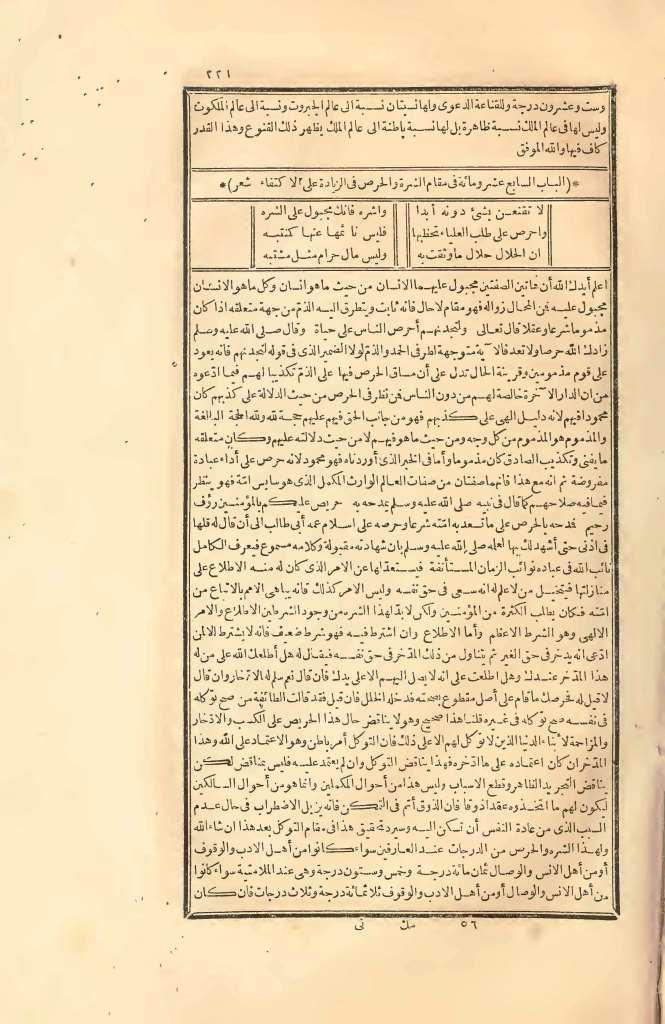 ٢٢١
وست وعشرون درجة وللقناعة الدعوى ولها نسبتان نسبة الى عالم الجبروت ونسبة الى عالم الملكوت
وليس لها فى عالم الملك نسبة ظاهرة بل لها نسبة باطنة الى عالم الملك يظهر ذلك القنوع وهذا القدر
كاف فيها والله الموفق
* (الباب السابع عشر ومائة فى مقام الشره والحرص فى الزيادة على الاكتفاء شعر) *
لا تقنعن بشئ دونه أبدا واشره فانك مجبول على الشره
واحرص على طلب العلياء تحظ بها فليس نائمها عنها كمنتبه
ان الحلال حلال ما وثقت به وليس مال حرام مثل مشتبه
اعلم أيدك الله أن هاتين الصفتين مجبول عليهما الانسان من حيث ما هو انسان وكل ما هو الانسان
مجبول عليه فن المحال زواله فهو مقام لا حال فانه ثابت ويتطرق اليه الذم من جهة متعلقه اذا كان
مذموما شرعا وعقلا قال تعالى ولتجدنهم أحرص الناس على حياة وقال صلى الله عليه وسلم
زادك الله حرصا ولا تعد فالآية متوجهة لطرفى الحمد والذم لولا الضمير الذى فى قوله لتجدنهم فانه يعود
على قوم مذمومين وقرينة الحال تدل على أن مساق الحرص فيها على الذم تكذيبا لهم فيما ادعوه
من ان الدار الآخرة خالصة لهم من دون الناس فمن نظر فى الحرص من حيث الدلالة على كذبهم كان
محمودا فيهم لانه دليل الهى على كذبهم فهو من جانب الحق فيهم عليهم حجة لله ولله الحجة البالغة
والمذموم هو المذموم من كل وجه ومن حيث ما هو فيهم لا من حيث دلالته عليهم وكان متعلقه
ما يفنى وتكذيب الصادق كان مذموما وأما فى الخبر الذى أوردناه فهو محمود لانه حرص على أداء عبادة
مفروضة ثم انه مع هذا فانهما صفتان من صفات العالم الوارث المكمل الذى هو سايس امّة فهو ينظر
فيما فيه صلاحهم كما قال فى نبيه صلى الله عليه وسلم يمدحه به حريص عليكم بالمؤمنين رؤف
رحيم فمدحه بالحرص على ما تسعد به امّته شرعا وحرصه على اسلام عمه أبى طالب الى أن قال له قلها
فى اذنى حتى أشهد لك بها لعلمه صلى الله عليه وسلم بان شهادته مقبولة وكلامه مسموع فيعرف الكامل
نائب الله فى عباده نوائب الزمان المستأنفة فيستعد لها عن الامر الذى كان له منه الاطلاع على
منازلتها فيتخيل من لا علم له انه سعى فى حق نفسه وليس الامر كذلك فانه يباهى الامم بالاتباع من
امّته فكان يطلب الكثرة من المؤمنين ولكن لا بد لهذا الشره من وجود الشرطين الاطلاع والامر
الالهى وهو الشرط الاعظم وأما الاطلاع وان اشترط فيه فهو شرط ضعيف فانه لا يشترط الا لمن
ادعى انه يدخر فى حق الغير ثم يتناول من ذلك المدخر فى حق نفسه فيقال له هل أطلعك الله على من له
هذا المدخر عندك وهل اطلعت على انه لا يصل اليهم الا على يدك فان قال نعم سلم له الادخار وان قال
لا قيل له فحرصك ما قام على أصل مقطوع بصحته فدخله الخلل فان قيل فقد قالت الطائفة من صح توكله
فى نفسه صح توكله فى غيره قلنا هذا صحيح وهو لا يناقض حال هذا الحريص على الكسب والادخار
والمزاحمة لابناء الدنيا الذين لا توكل لهم الا على ذلك فان التوكل أمر باطن وهو الاعتماد على الله وهذا
المدخر ان كان اعتماده على ما ادخره فهذا يناقض التوكل وان لم يعتمد عليه فليس بمناقض لكن
يناقض التجريد الظاهر وقطع الاسباب وليس هذا من أحوال المكملين وانما هو من أحوال السالكين
ليكون لهم ما اتخذوه عقدا ذوقا فان الذوق أتم فى التمكن فانه يزيل الاضطراب فى حال عدم
السبب الذى من عادة النفس أن تسكن اليه وسيرد تحقيق هذا فى مقام التوكل بعد هذا ان شاء الله
ولهذا الشره والحرص من الدرجات عند العارفين سواء كانوا من أهل الادب والوقوف
أو من أهل الانس والوصال ثمان مائة درجة وخمس وستون درجة وهى عند الملامتية سواء كانوا
من أهل الانس والوصال أو من أهل الادب والوقوف ثلاثمائة درجة وثلاث درجات فان كان
٥٦ مك نى